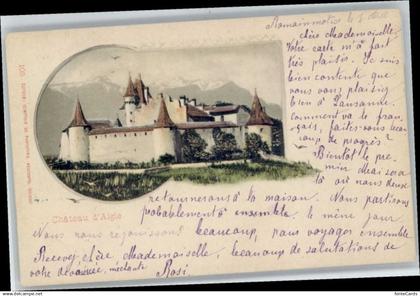 Romainmotier le 5 Août
Chère Mademoiselle,
Votre carte m'a fait
très plaisir. Je suis
bien contente que
vous vous plaisiez
bien à Lausanne.
Comment va le fran-
çais, faites-vous beau-
coup de progrès.
Bientôt le pre-
mier mai sera
là où nous deux
retournerons à la maison. Nous partirons
probablement ensemble le même jour
Nous nous réjouissons beaucoup, pour voyager ensemble
Recevez, chère Mademoiselle, beaucoup de salutations de
votre dévouée, Rosi
Château d'Aigle
105